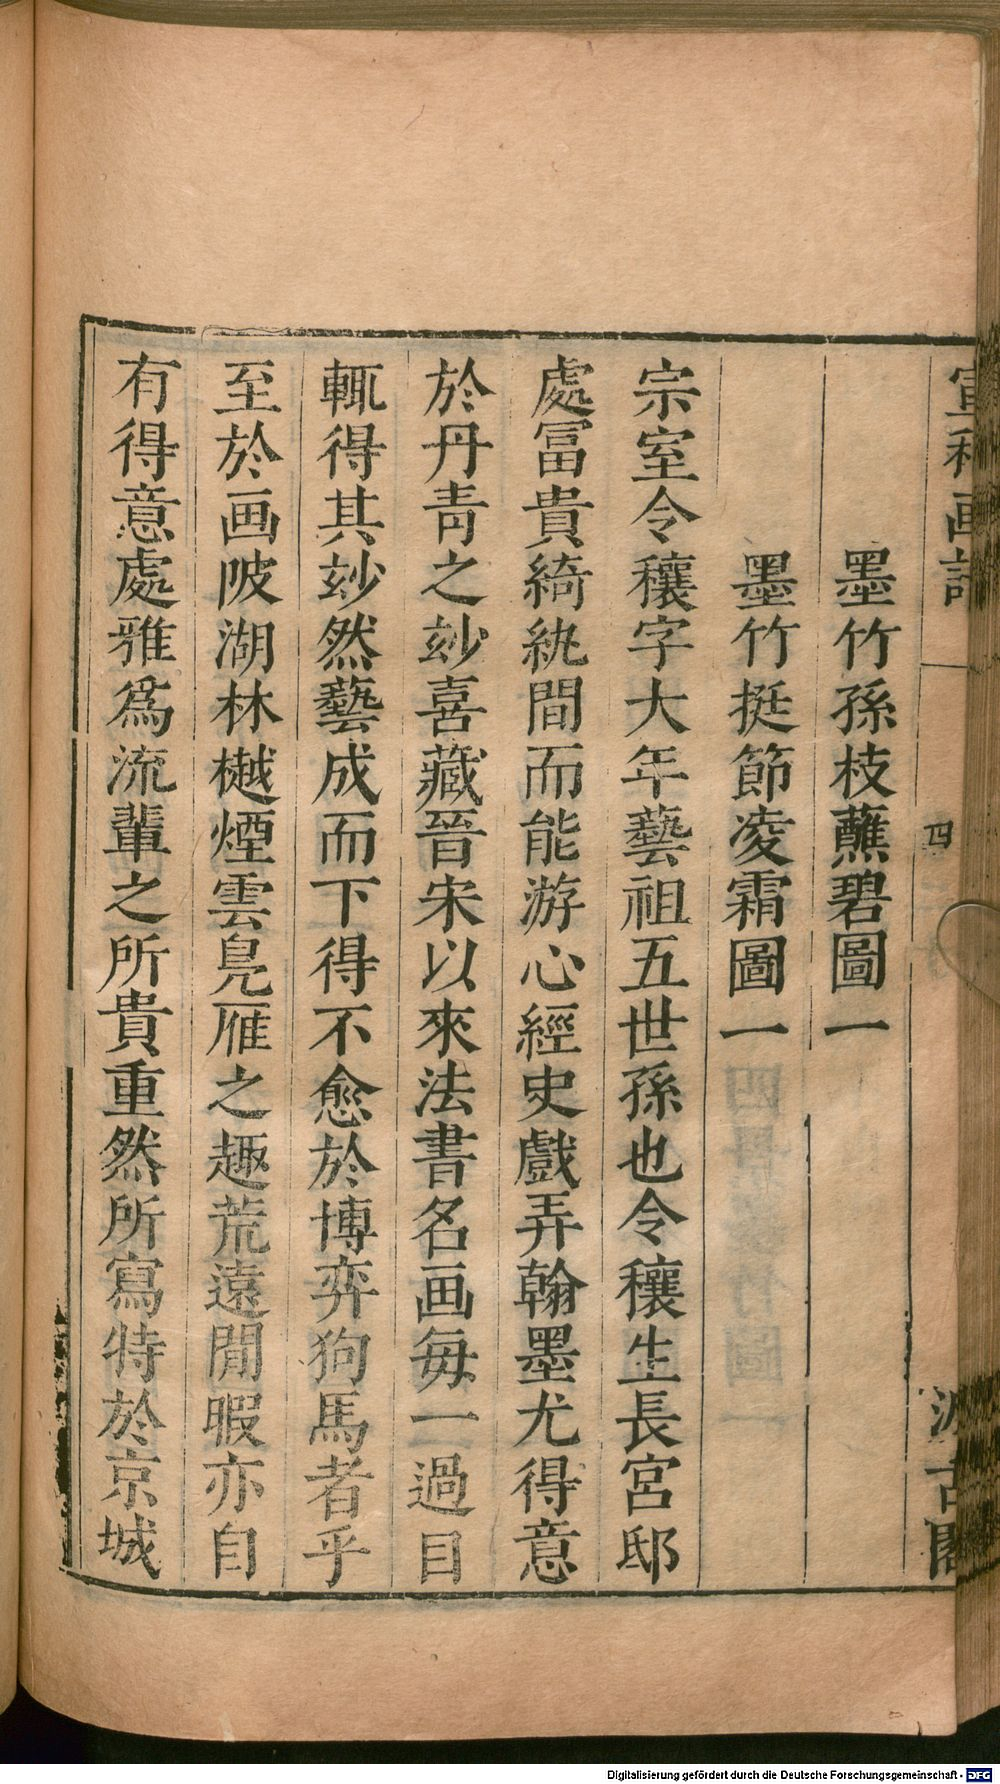 宣和画譜 四 汲古閣
墨竹孫枝蘸碧圖一
墨竹挺節凌霜圖一
宗室令穰字大年藝祖五世孫也令穰生長宮邸
處冨貴綺紈間而能游心經史戲弄翰墨尤得意
於丹青之玅喜藏晉宋以來法書名画每一過目
輒得其玅然藝成而下得不愈於博弈狗馬者乎
至於画陂湖林樾煙雲鳧雁之趣荒遠閒暇亦自
有得意處雅爲流輩之所貴重然所寫特於京城
Digitalisierung gefördert durch die Deutsche Forschungsgemeinschaft - DFG